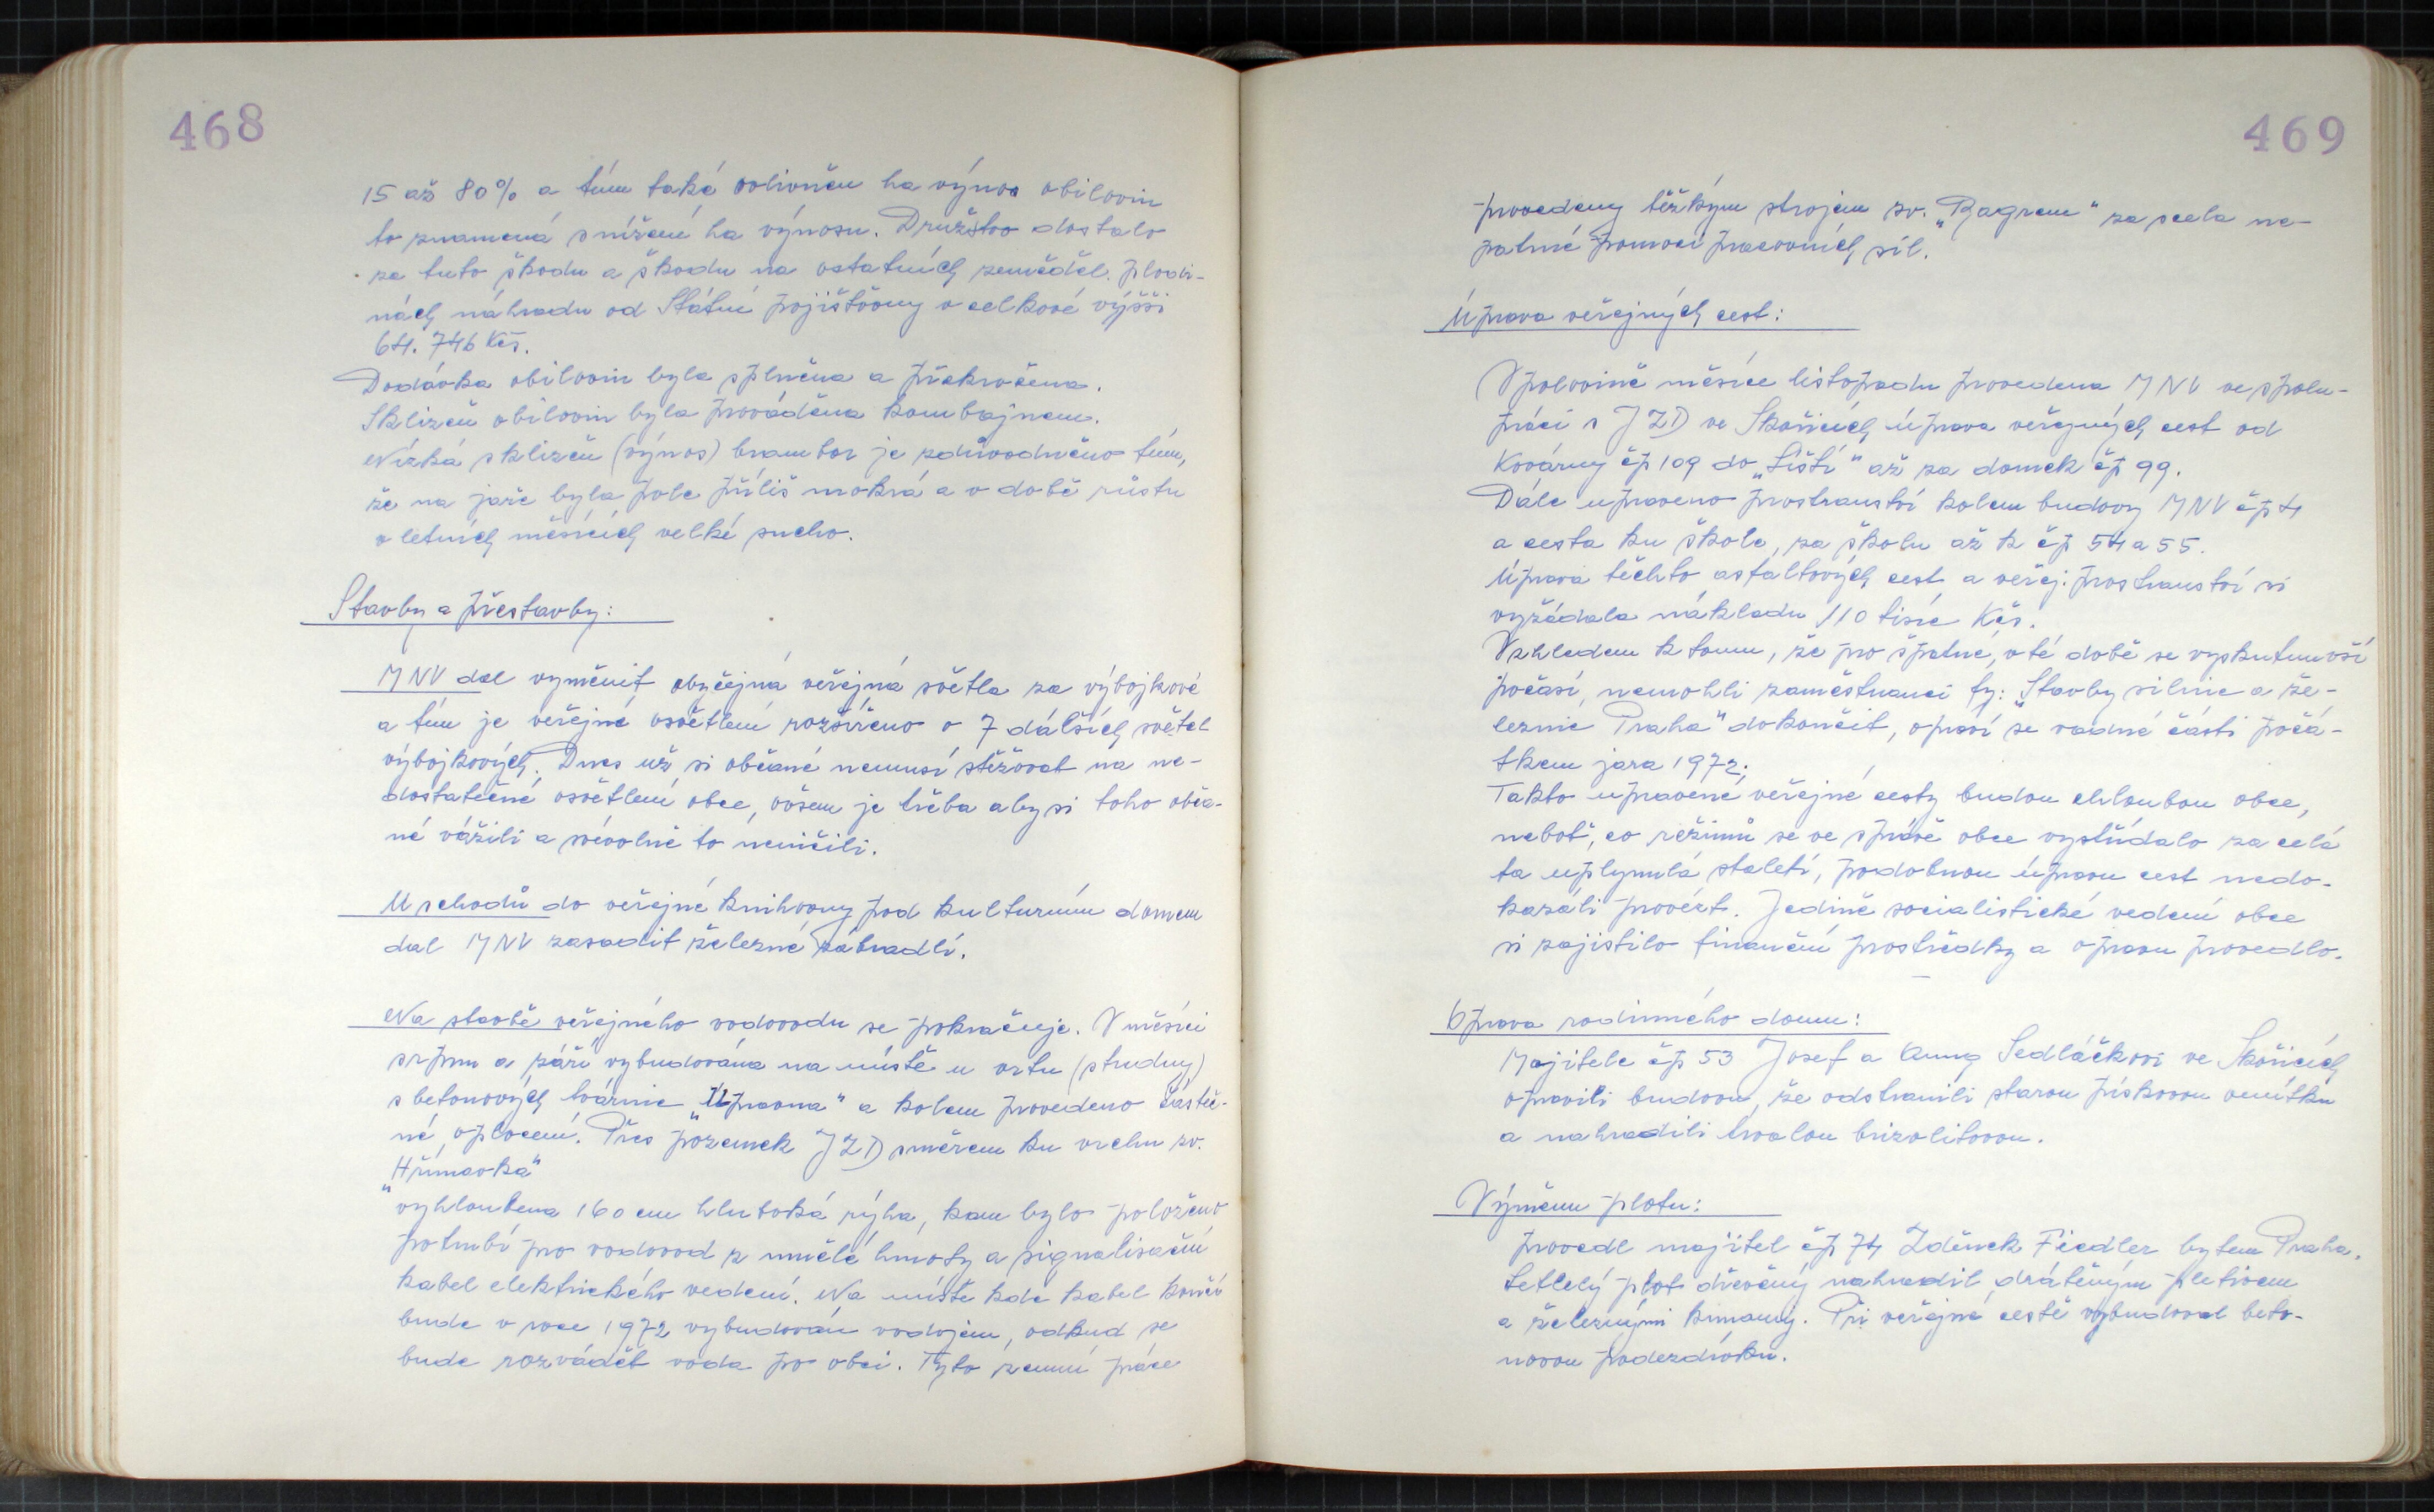 468
15 až 80% a tím také ovlivněn ha výnos obilovin
to znamená snížení ha výnosu. Družstvo dostalo
za tuto škodu a škodu na ostatních zeměděl. plodi-
nách náhradu od Státní pojišťovny v celkové výšši
64.746 Kčs.
Dodávka obilovin byla splněna a překročena.
Sklizeň obilovin byla prováděna kombajnem.
Nízká sklizeň (výnos) brambor je zdůvodněno tím,
že na jaře byla pole příliš mokrá a v době růstu
v letních měsících velké sucho.
Stavby a přestavby:
MNV dal vyměnit obyčejná veřejná světla za výbojkové
a tím je veřejné osvětlení rozšířeno o 7 dálších světel
výbojkových. Dnes už si občané nemusí stěžovat na ne-
dostatečné osvětlení obce, ovšem je třeba aby si toho obča-
né vážili a svévolně to neničili.
U schodů do veřejné knihovny pod kulturním domem
dal MNV zasadit železné zábradlí.
Na stavbě veřejného vodovodu se pokračuje. V měsíci
srpnu a září vybudována na místě u vrtu (studny)
s betonových tvárnic „Úpravna" a kolem provedeno částeč-
né oplocení. Přes pozemek JZD směrem ku vrchu zv.
„Hřímavka"
vyhloubena 160 cm hluboká rýha, kam bylo položeno
potrubí pro vodovod z umělé hmoty a signalisační
kabel elektrického vedení. Na místě kde kabel končí
bude v roce 1972 vybudován vodojem, odkud se
bude rozvádět voda po obci. Tyto zemní práce
469
provedeny těžkým strojem zv. „Bagrem" za zcela ne-
patrné pomoci pracovních sil.
Úprava veřejných cest:
V polovině měsíce listopadu provedena MNV ve spolu-
práci s JZD ve Skořicích úprava veřejných cest od
Kovárny čp 109 do „Liští" až za domek čp 99.
Dále upraveno prostranství kolem budovy MNV čp 4
a cesta ku škole, za školu až k čp 54 a 55.
Úprava těchto asfaltových cest a veřej. prostranství si
vyžádala nákladu 110 tisíc Kčs.
Vzhledem k tomu, že pro špatné, v té době se vyskytnuvší
počasí, nemohli zaměstnanci fy: „Stavby silnic a že-
leznic Praha" dokončit, opraví se vadné části počá-
tkem jara 1972.
Takto upravené veřejné cesty budou chloubou obce,
neboť, co režimů se ve správě obce vystřídalo za celá
ta uplynulá staletí, podobnou úpravu cest nedo-
kázali provért. Jedině socialistické vedení obce
si zajistilo finanční prostředky a opravu provedlo.
Oprava rodinného domu:
Majitele čp 53 Josef a Anny Sedláčkovi ve Skořicích
opravili budovu, že odstranili starou pískovou omítku
a nahradili trvalou brizolitovou.
Výměnu plotu:
provedl majitel čp 74 Zděnek Fiedler bytem Praha.
Setlelý plot dřevěný nahradil drátěným pletivem
a železnými kmany. Při veřejné cestě vybudoval beto-
novou podezdívku.